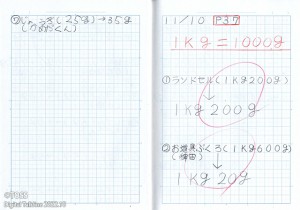 (25g)→35g
11/10 P37
1Kg=1000g
①ランドセル(1Kg200g)
↓
1Kg200g
②お道具ぶくろ(1Kg600g)
↓
1Kg20g
©TOSS
Digital Edition 2022.10